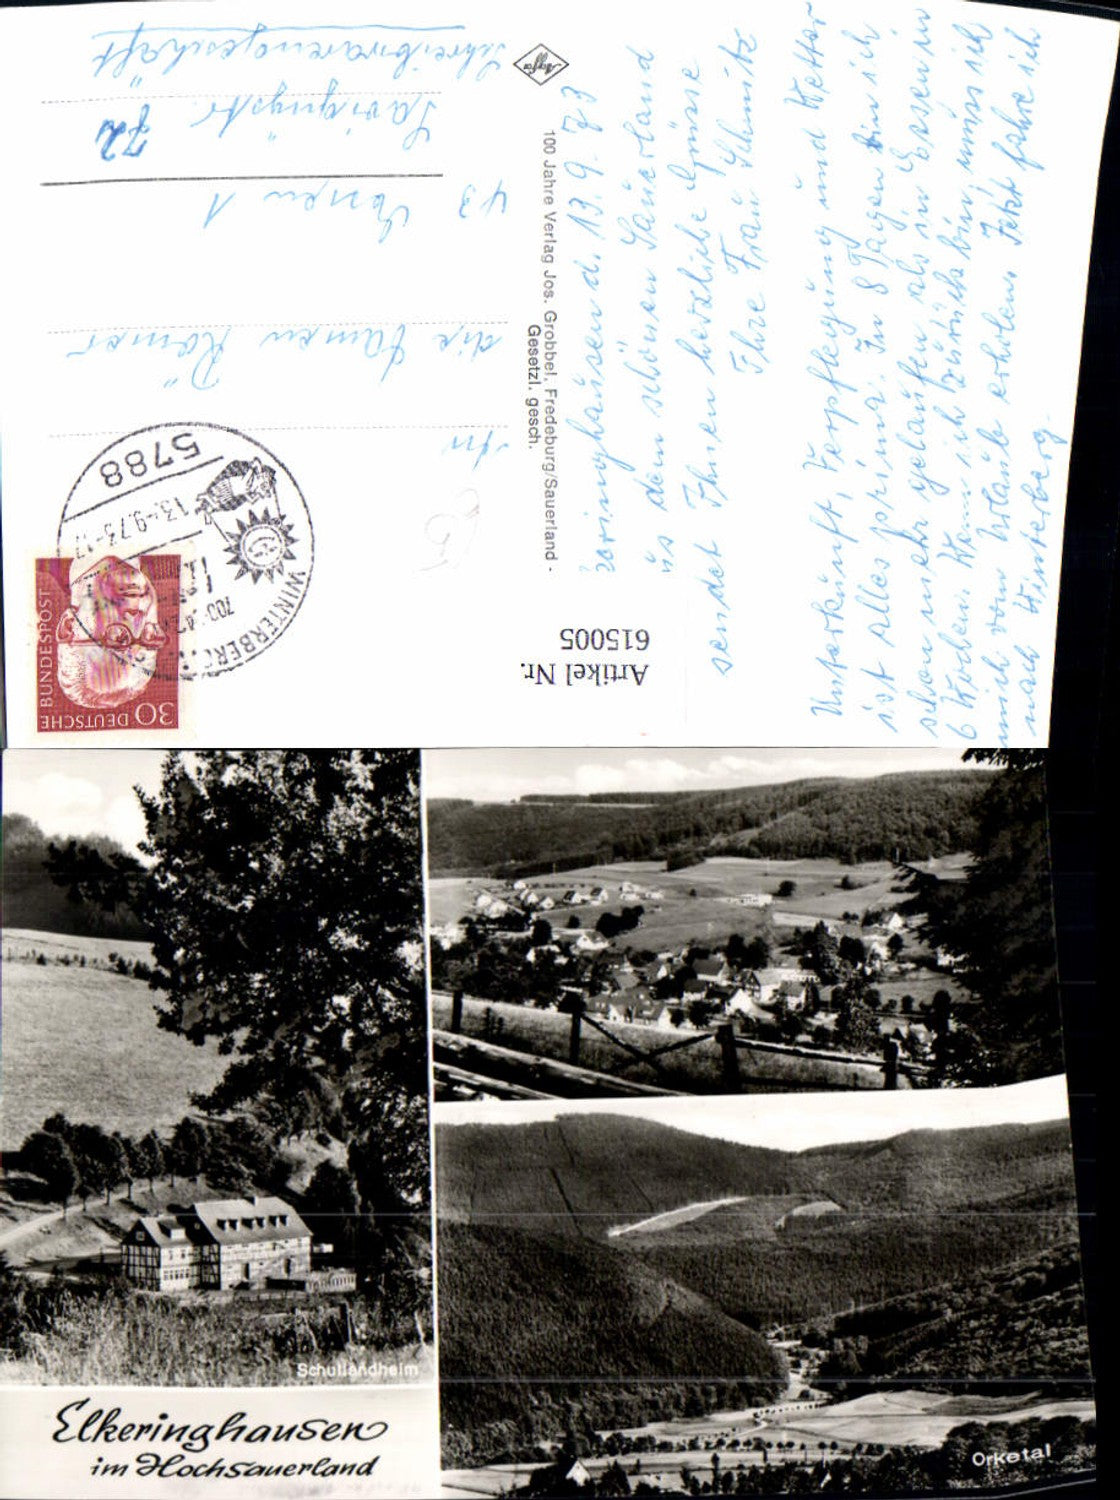 Züringhausen d. 13.9.73
is dem schönen Sauerland
sendet Ihnen herzliche Grüsse
Ihre Frau Schmitz
Unterkunft, Verpflegung und Wetter
ist alles prima. In 8 Tagen bin ich
schon mehr gelaufen als in Essen in
6 Wochen. Wenn ich zurück bin, muss ich
mich vom Urlaub erholen. Jetzt fahre ich
nach Winterberg.
100 Jahre Verlag Jos. Grobbel, Fredeburg/Sauerland -
Gesetzl. gesch.
Agfa
An
die Damen Römer
43 Essen 1
Savignystr. 72
Schreibwarengeschäft
DEUTSCHE BUNDESPOST
30
5788
13.-9.73-17
WINTERBERG
Artikel Nr.
615005
Schullandheim
Elkeringhausen
im Hochsauerland
Orketal